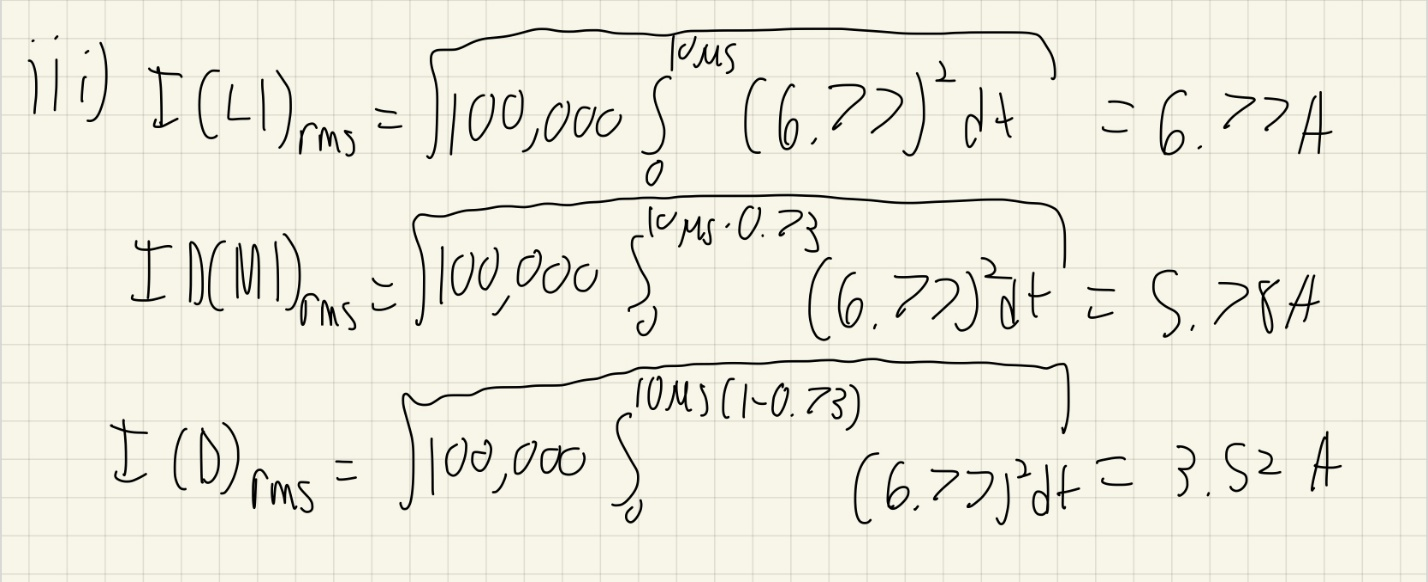 iii) I(L1)rms = √100,000 ∫₀^10μs (6.77)² dt = 6.77A
ID(M1)rms = √100,000 ∫₀^10μs·0.73 (6.77)² dt = 5.78A
I(D)rms = √100,000 ∫₀^10μs(1-0.73) (6.77)² dt = 3.52 A